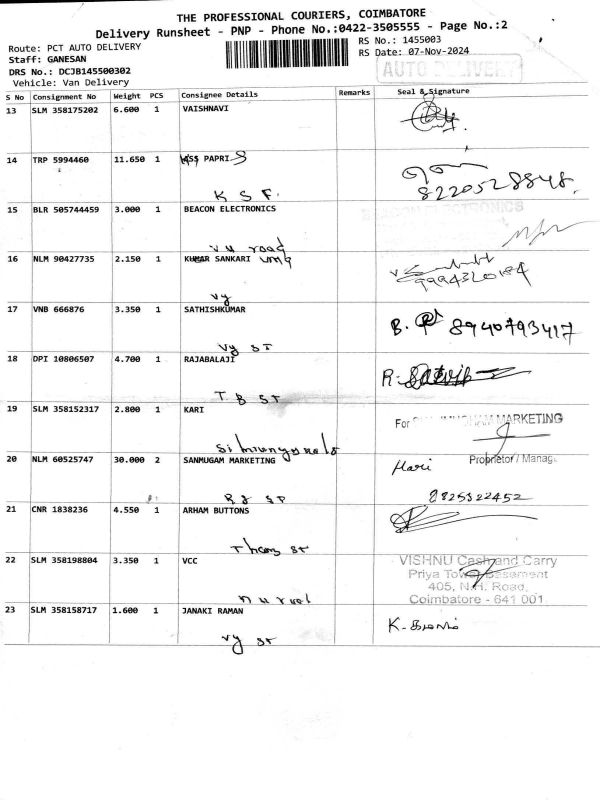 THE PROFESSIONAL COURIERS, COIMBATORE
Delivery Runsheet - PNP - Phone No.:0422-3505555 - Page No.:2
Route: PCT AUTO DELIVERY
RS No.: 1455003
Staff: GANESAN
RS Date: 07-Nov-2024
DRS No.: DCJB145500302
AUTO DELIVERY
Vehicle: Van Delivery
S No Consignment No Weight PCS Consignee Details Remarks Seal & Signature
13 SLM 358175202 6.600 1 VAISHNAVI
14 TRP 5994460 11.650 1 PAPRI S
K S F.
8220528848.
15 BLR 505744459 3.000 1 BEACON ELECTRONICS
BEACON ELECTRONICS
V U road
16 NLM 90427735 2.150 1 KUMAR SANKARI
9994320184
Vy
17 VNB 666876 3.350 1 SATHISHKUMAR
B. 8940793417
Vy ST
18 DPI 10806507 4.700 1 RAJABALAJI
R.
T. B ST
19 SLM 358152317 2.800 1 KARI
For MARKETING
20 NLM 60525747 30.000 2 SANMUGAM MARKETING
Proprietor / Manag.
Hari
9825322452
21 CNR 1838236 4.550 1 ARHAM BUTTONS
ST
22 SLM 358198804 3.350 1 VCC
VISHNU Cash and Carry
Priya Tower Basement
405, N.H. Road,
Coimbatore - 641 001
23 SLM 358158717 1.600 1 JANAKI RAMAN
K.
Vy ST